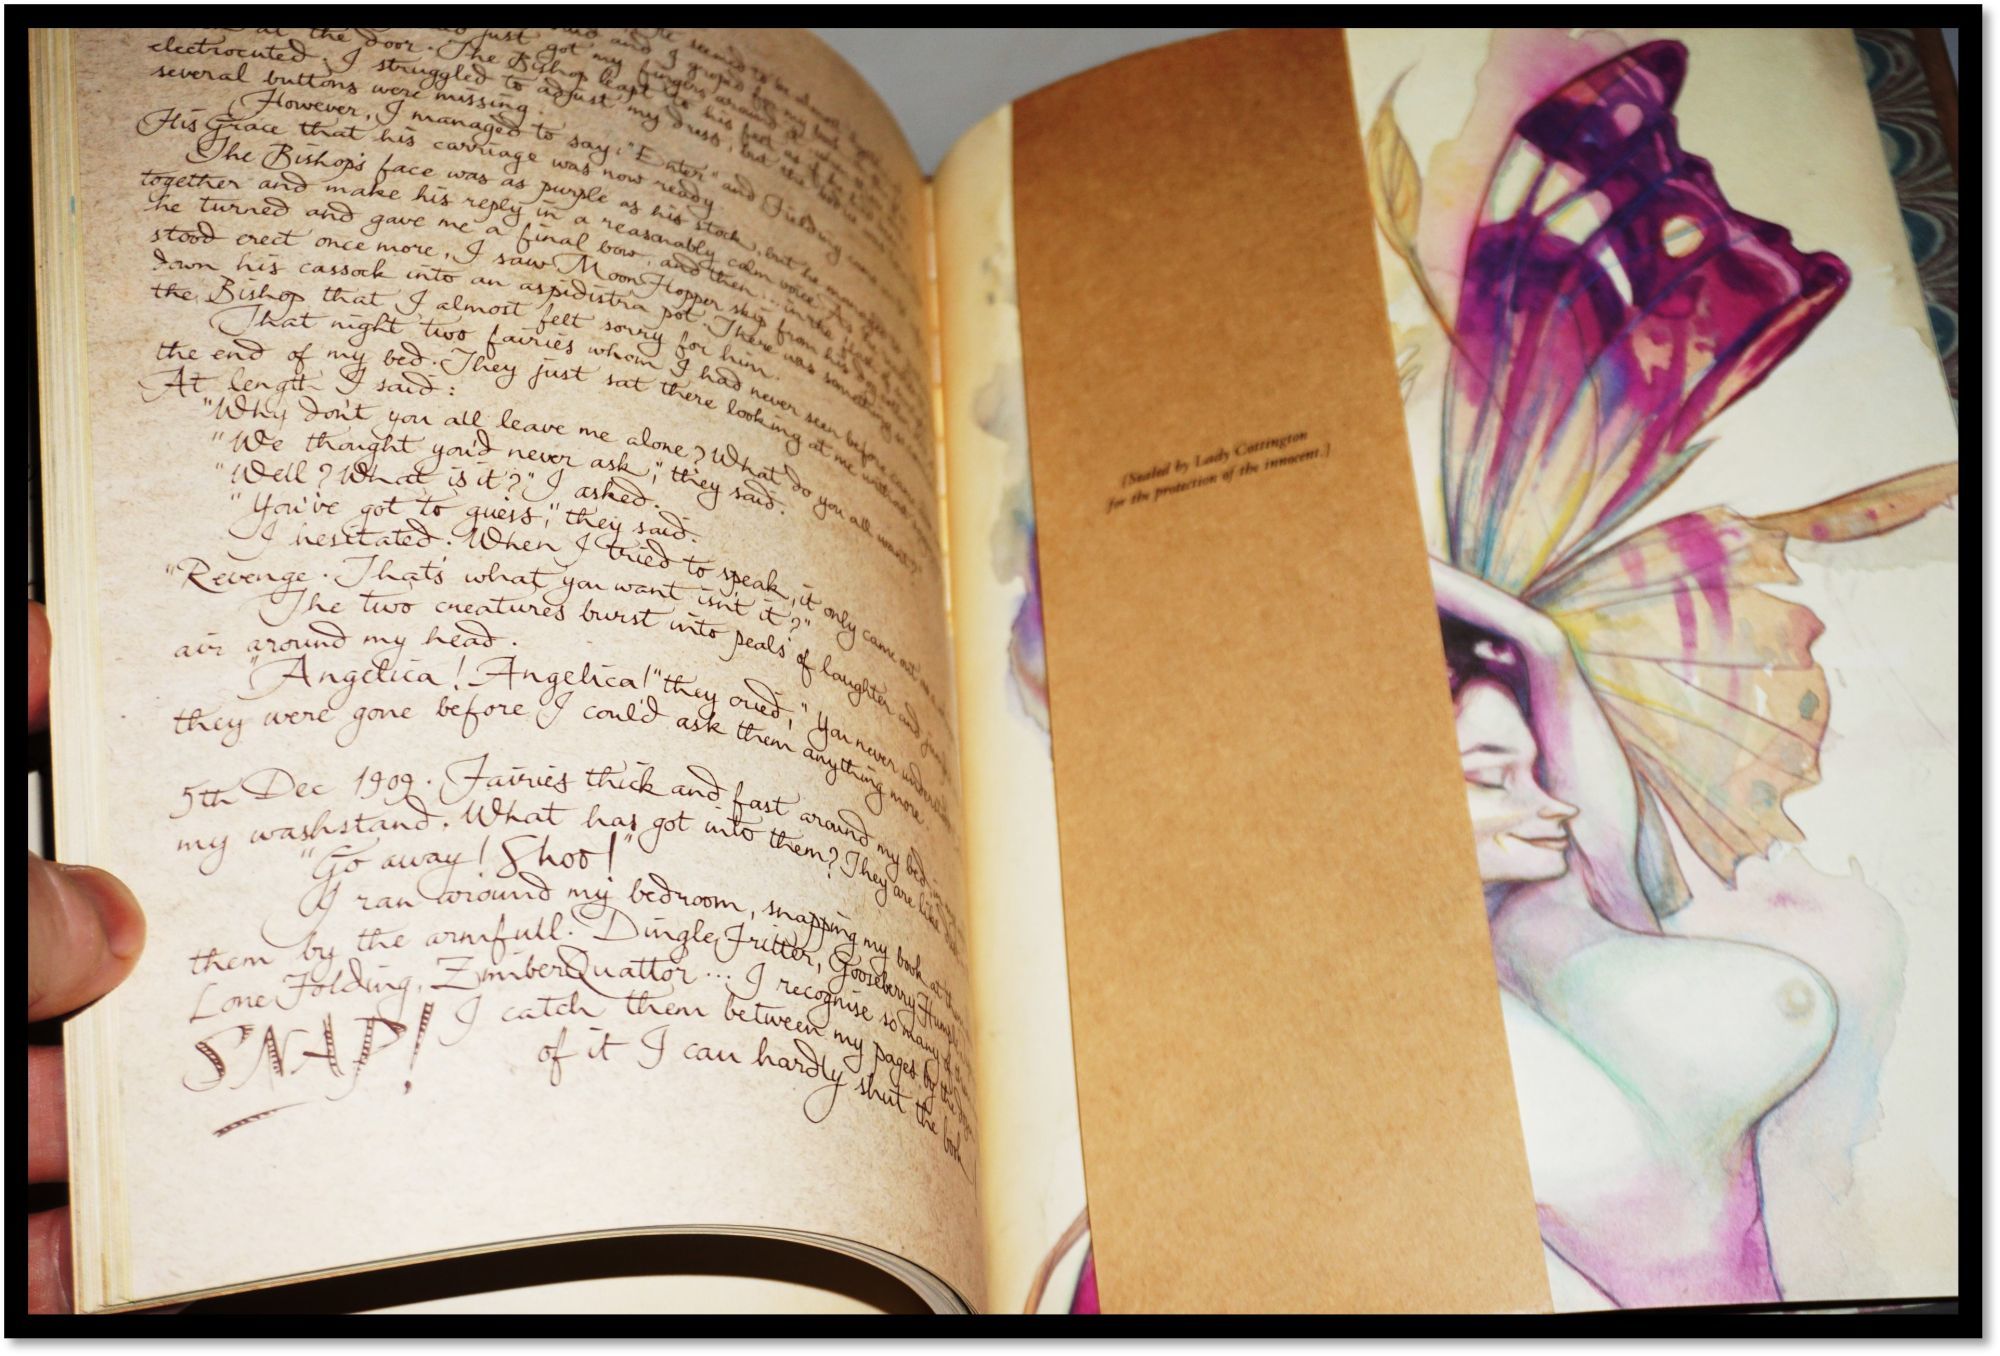 at the door. The Bishop leapt to his feet as if he had been
electrocuted. I struggled to adjust my dress, but the
several buttons were missing.
However, I managed to say: "Enter" and Fielding came
His Grace that his carriage was now ready.
The Bishop's face was as purple as his stock, but he managed
together and make his reply in a reasonably calm voice. As he
he turned and gave me a final bow, and then... in the
stood erect once more, I saw Moon Hopper skip from his dog collar
down his cassock into an aspidistra pot. There was something
the Bishop that I almost felt sorry for him.
That night two fairies whom I had never seen before came
the end of my bed. They just sat there looking at me with
At length I said:
"Why don't you all leave me alone? What do you all want?"
"We thought you'd never ask," they said.
"Well? What is it?" I asked.
"You've got to guess," they said.
I hesitated. When I tried to speak, it only came out as a
"Revenge. That's what you want isn't it?"
The two creatures burst into peals of laughter and
air around my head.
"Angelica! Angelica!" they cried, "You never understand
they were gone before I could ask them anything more.
5th Dec 1909. Fairies thick and fast around my bed,
my washstand. What has got into them? They are like
"Go away! Shoo!"
I ran around my bedroom, snapping my book at them
them by the armfull. Dingle Fritter, Gooseberry
Lone Folding, Zimiber Quattor... I recognise so many of them
SNAP! I catch them between my pages by the
of it I can hardly shut the book
[Sealed by Lady Cottington
for the protection of the innocent.]